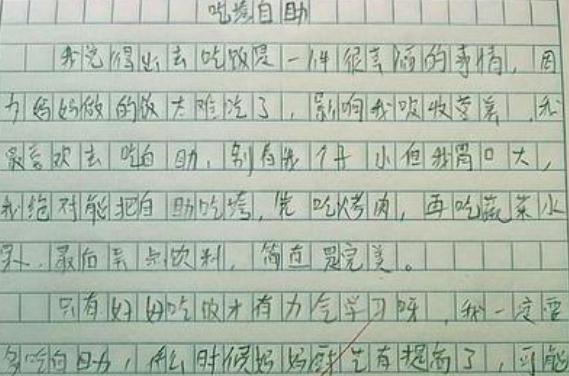 吃垮自助
我觉得出去吃饭是一件很幸福的事情,因
为妈妈做的饭太难吃了,影响我吸收营养,我
最喜欢去吃自助,别看我个子小但我胃口大,
我绝对能把自助吃垮,先吃烤肉,再吃蔬菜水
果,最后来点饮料,简直是完美。
只有好好吃饭才有力气学习呀,我一定要
多吃自助,什么时候妈妈厨艺有提高了,可能